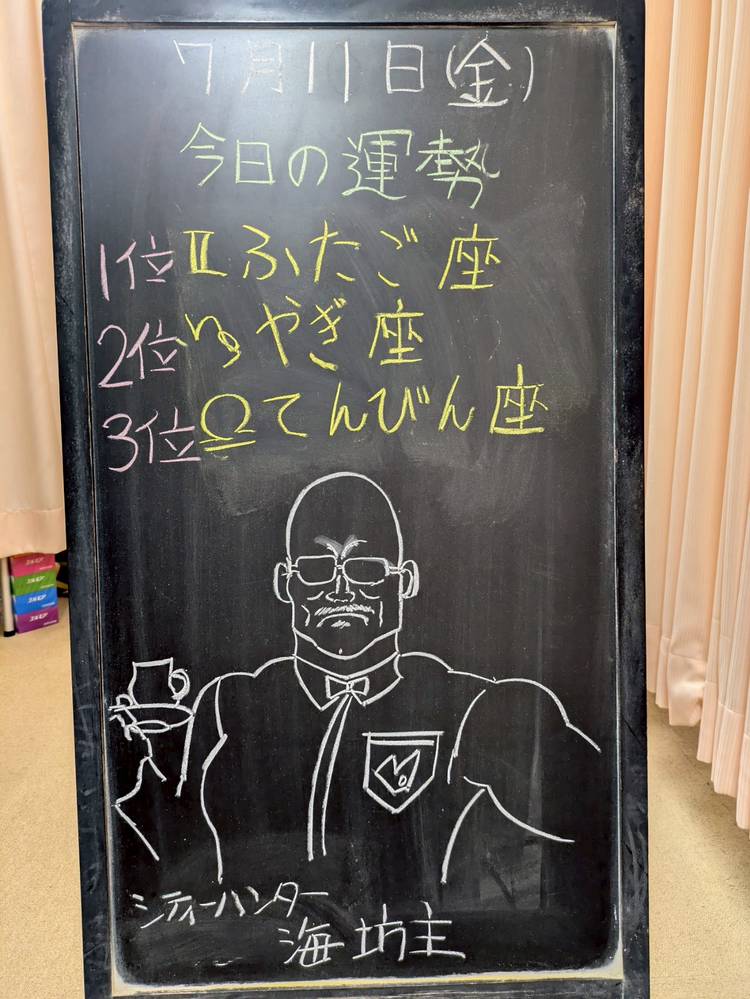 7月11日(金)
今日の運勢
1位♊ふたご座
2位♑やぎ座
3位♎てんびん座
シティーハンター
海坊主